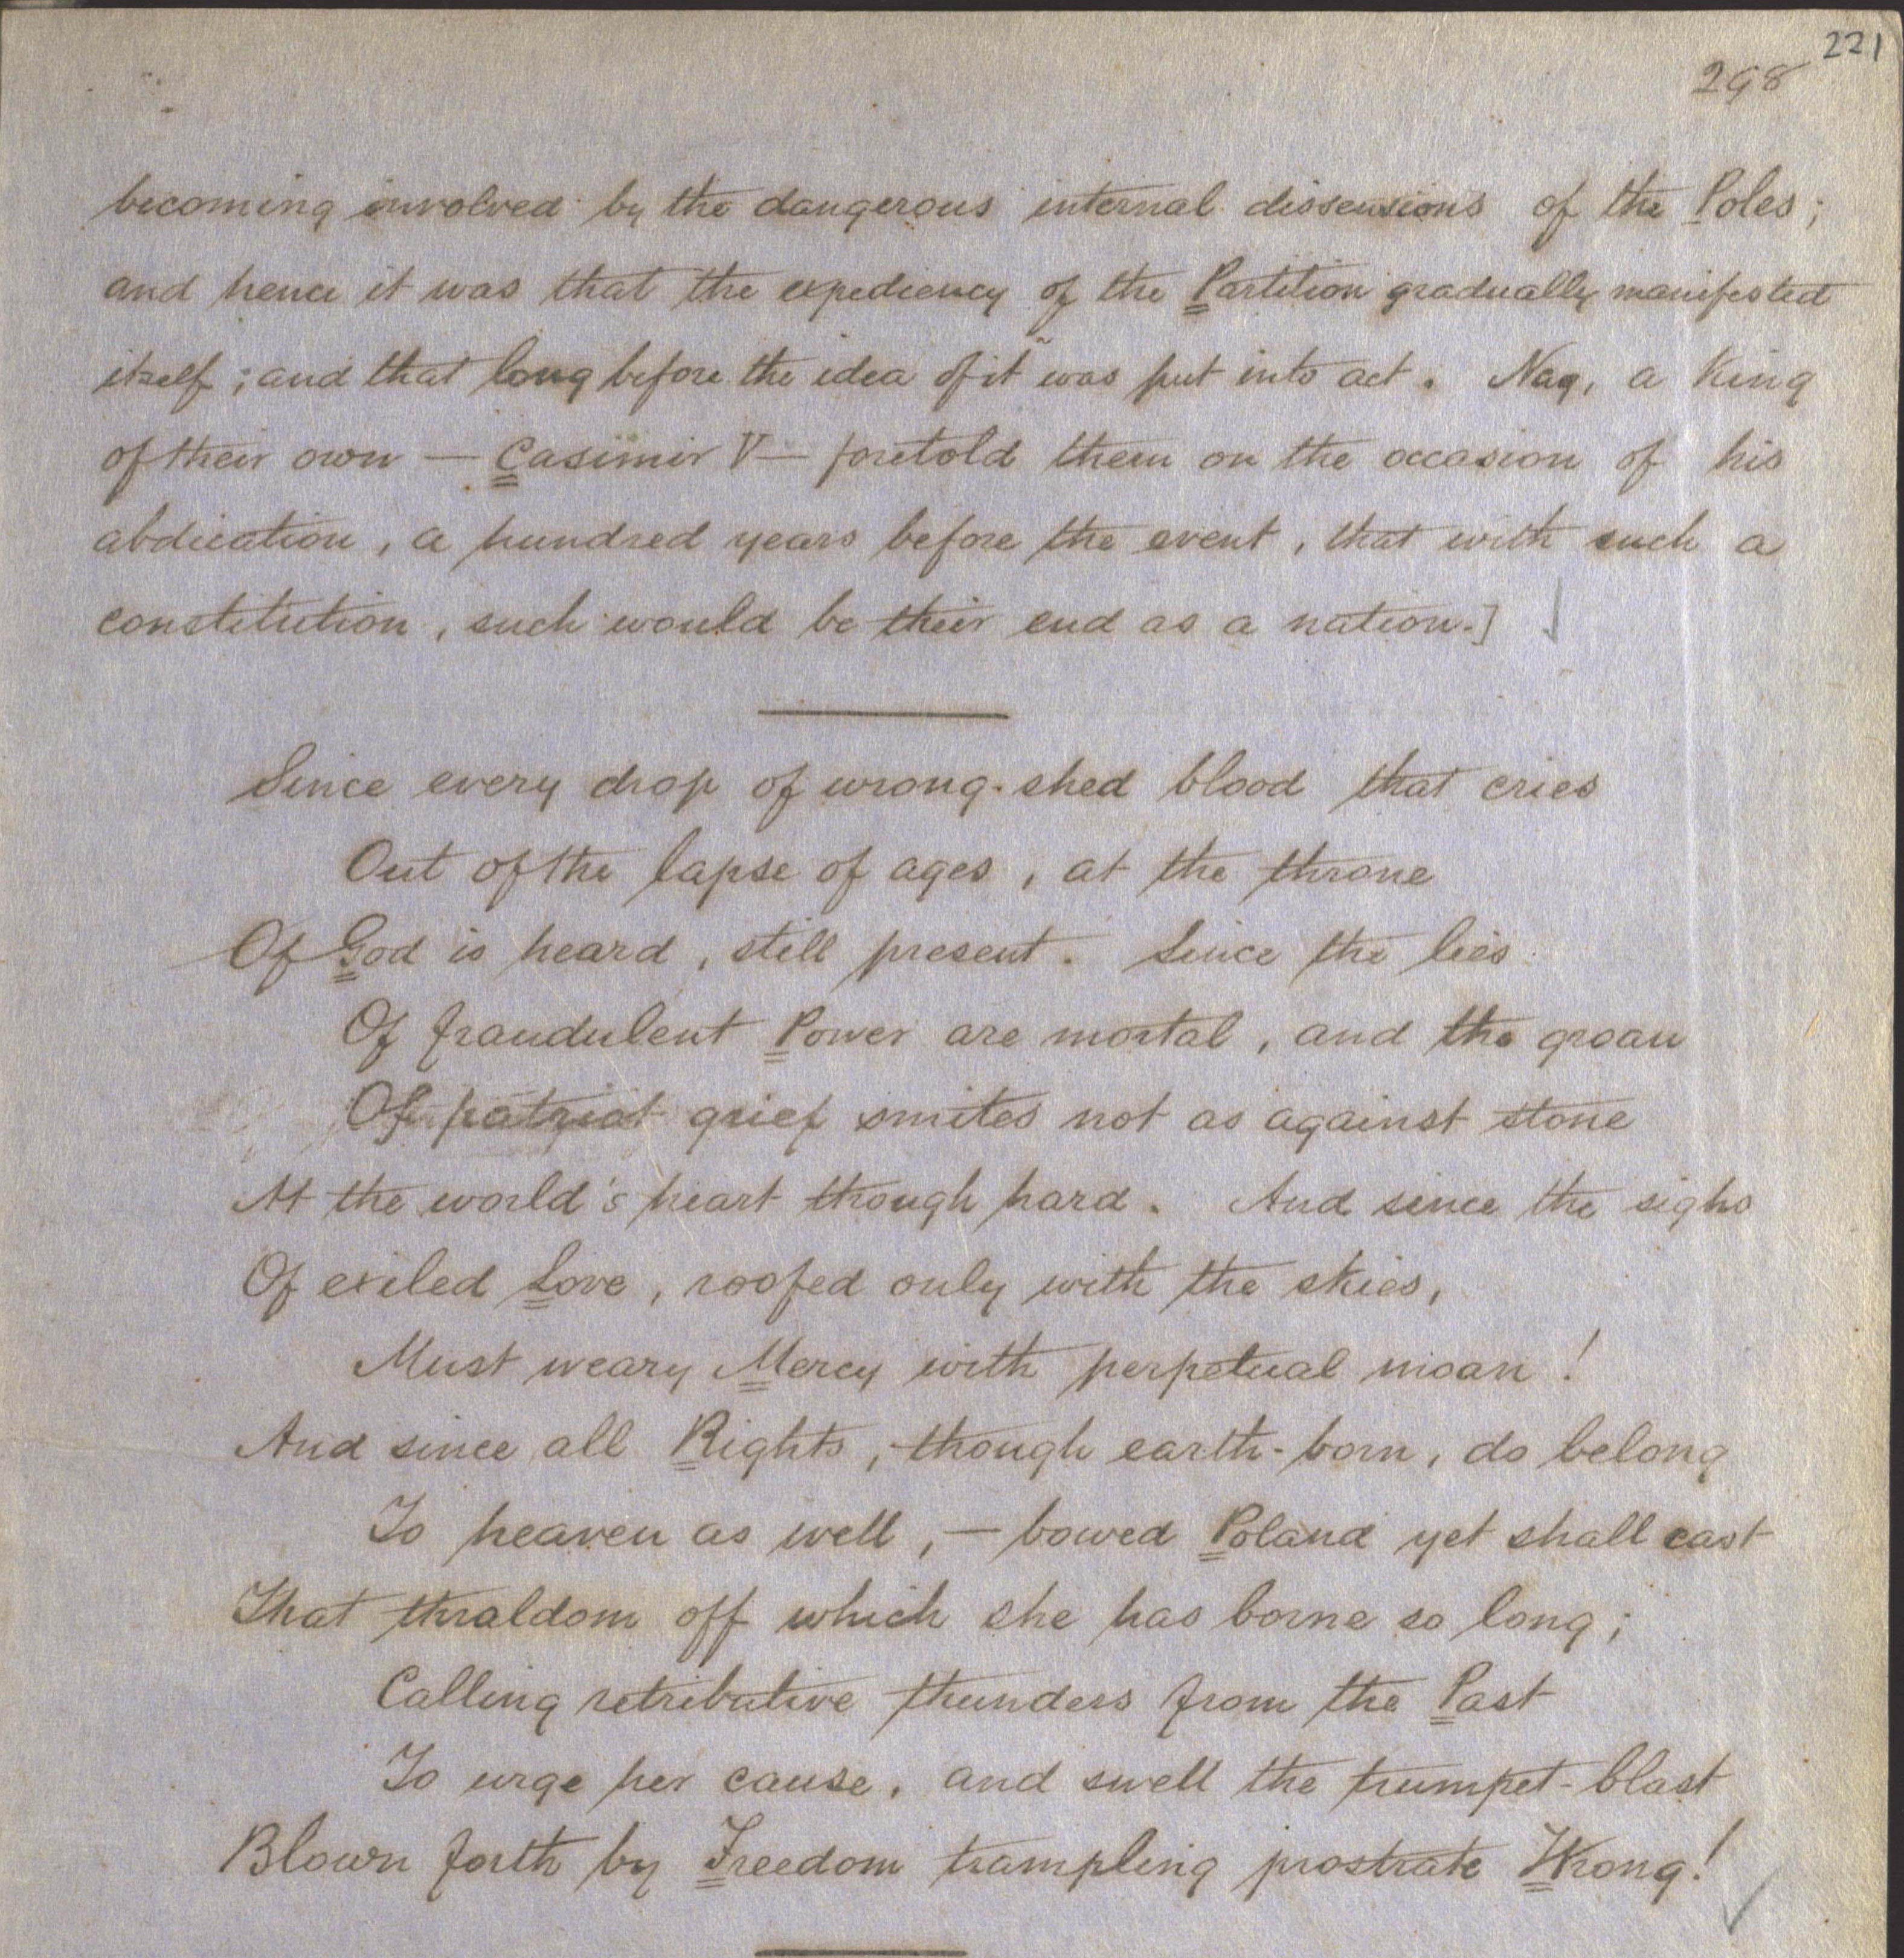 221
298
becoming involved by the dangerous internal dissensions of the Poles;
and hence it was that the expediency of the Partition gradually manifested
itself; and that long before the idea of it was put into act. Nay, a King
of their own — Casimir V — foretold them on the occasion of his
abdication, a hundred years before the event, that with such a
constitution, such would be their end as a nation.]
Since every drop of wrong-shed blood that cries
Out of the lapse of ages, at the throne
Of God is heard, still present. Since the lies
Of fraudulent Power are mortal, and the groan
Of patriot grief smites not as against stone
At the world's heart though hard. And since the sighs
Of exiled Love, roofed only with the skies,
Must weary Mercy with perpetual moan!
And since all Rights, though earth-born, do belong
To heaven as well, — bowed Poland yet shall cast
That thraldom off which she has borne so long;
Calling retributive thunders from the Past
To urge her cause, and swell the trumpet-blast
Blown forth by Freedom trampling prostrate Wrong!